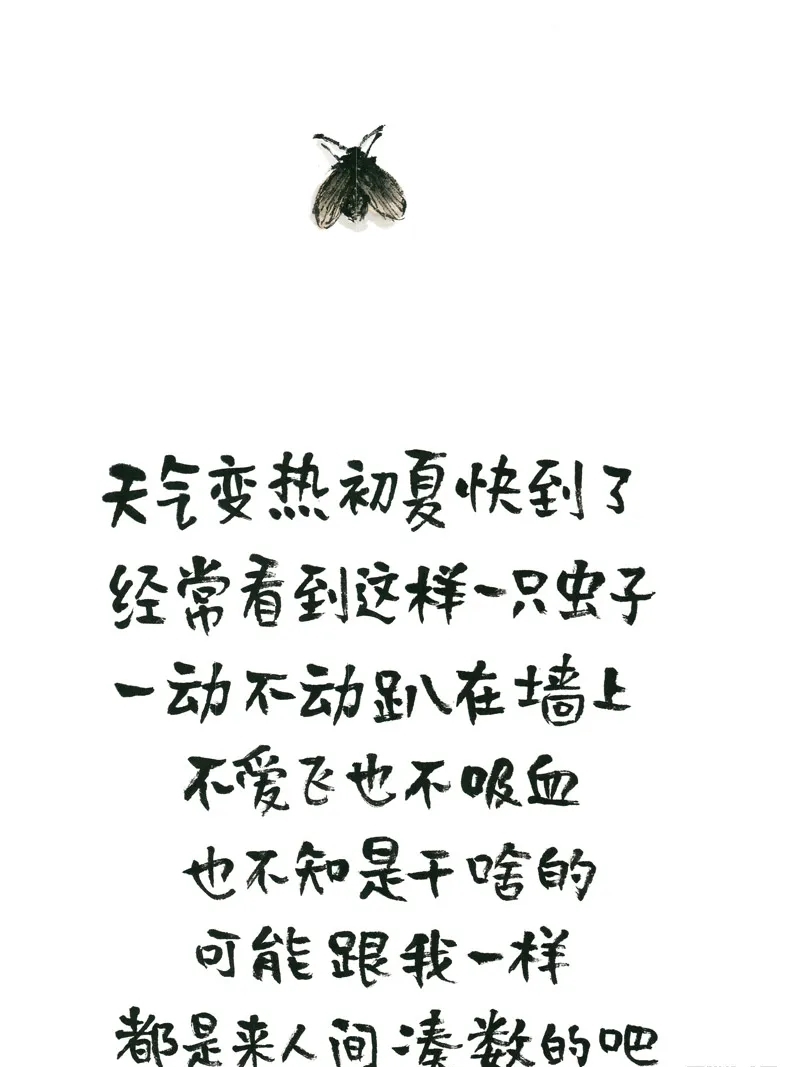 天气变热初夏快到了
经常看到这样一只虫子
一动不动趴在墙上
不爱飞也不吸血
也不知是干啥的
可能跟我一样
都是来人间凑数的吧